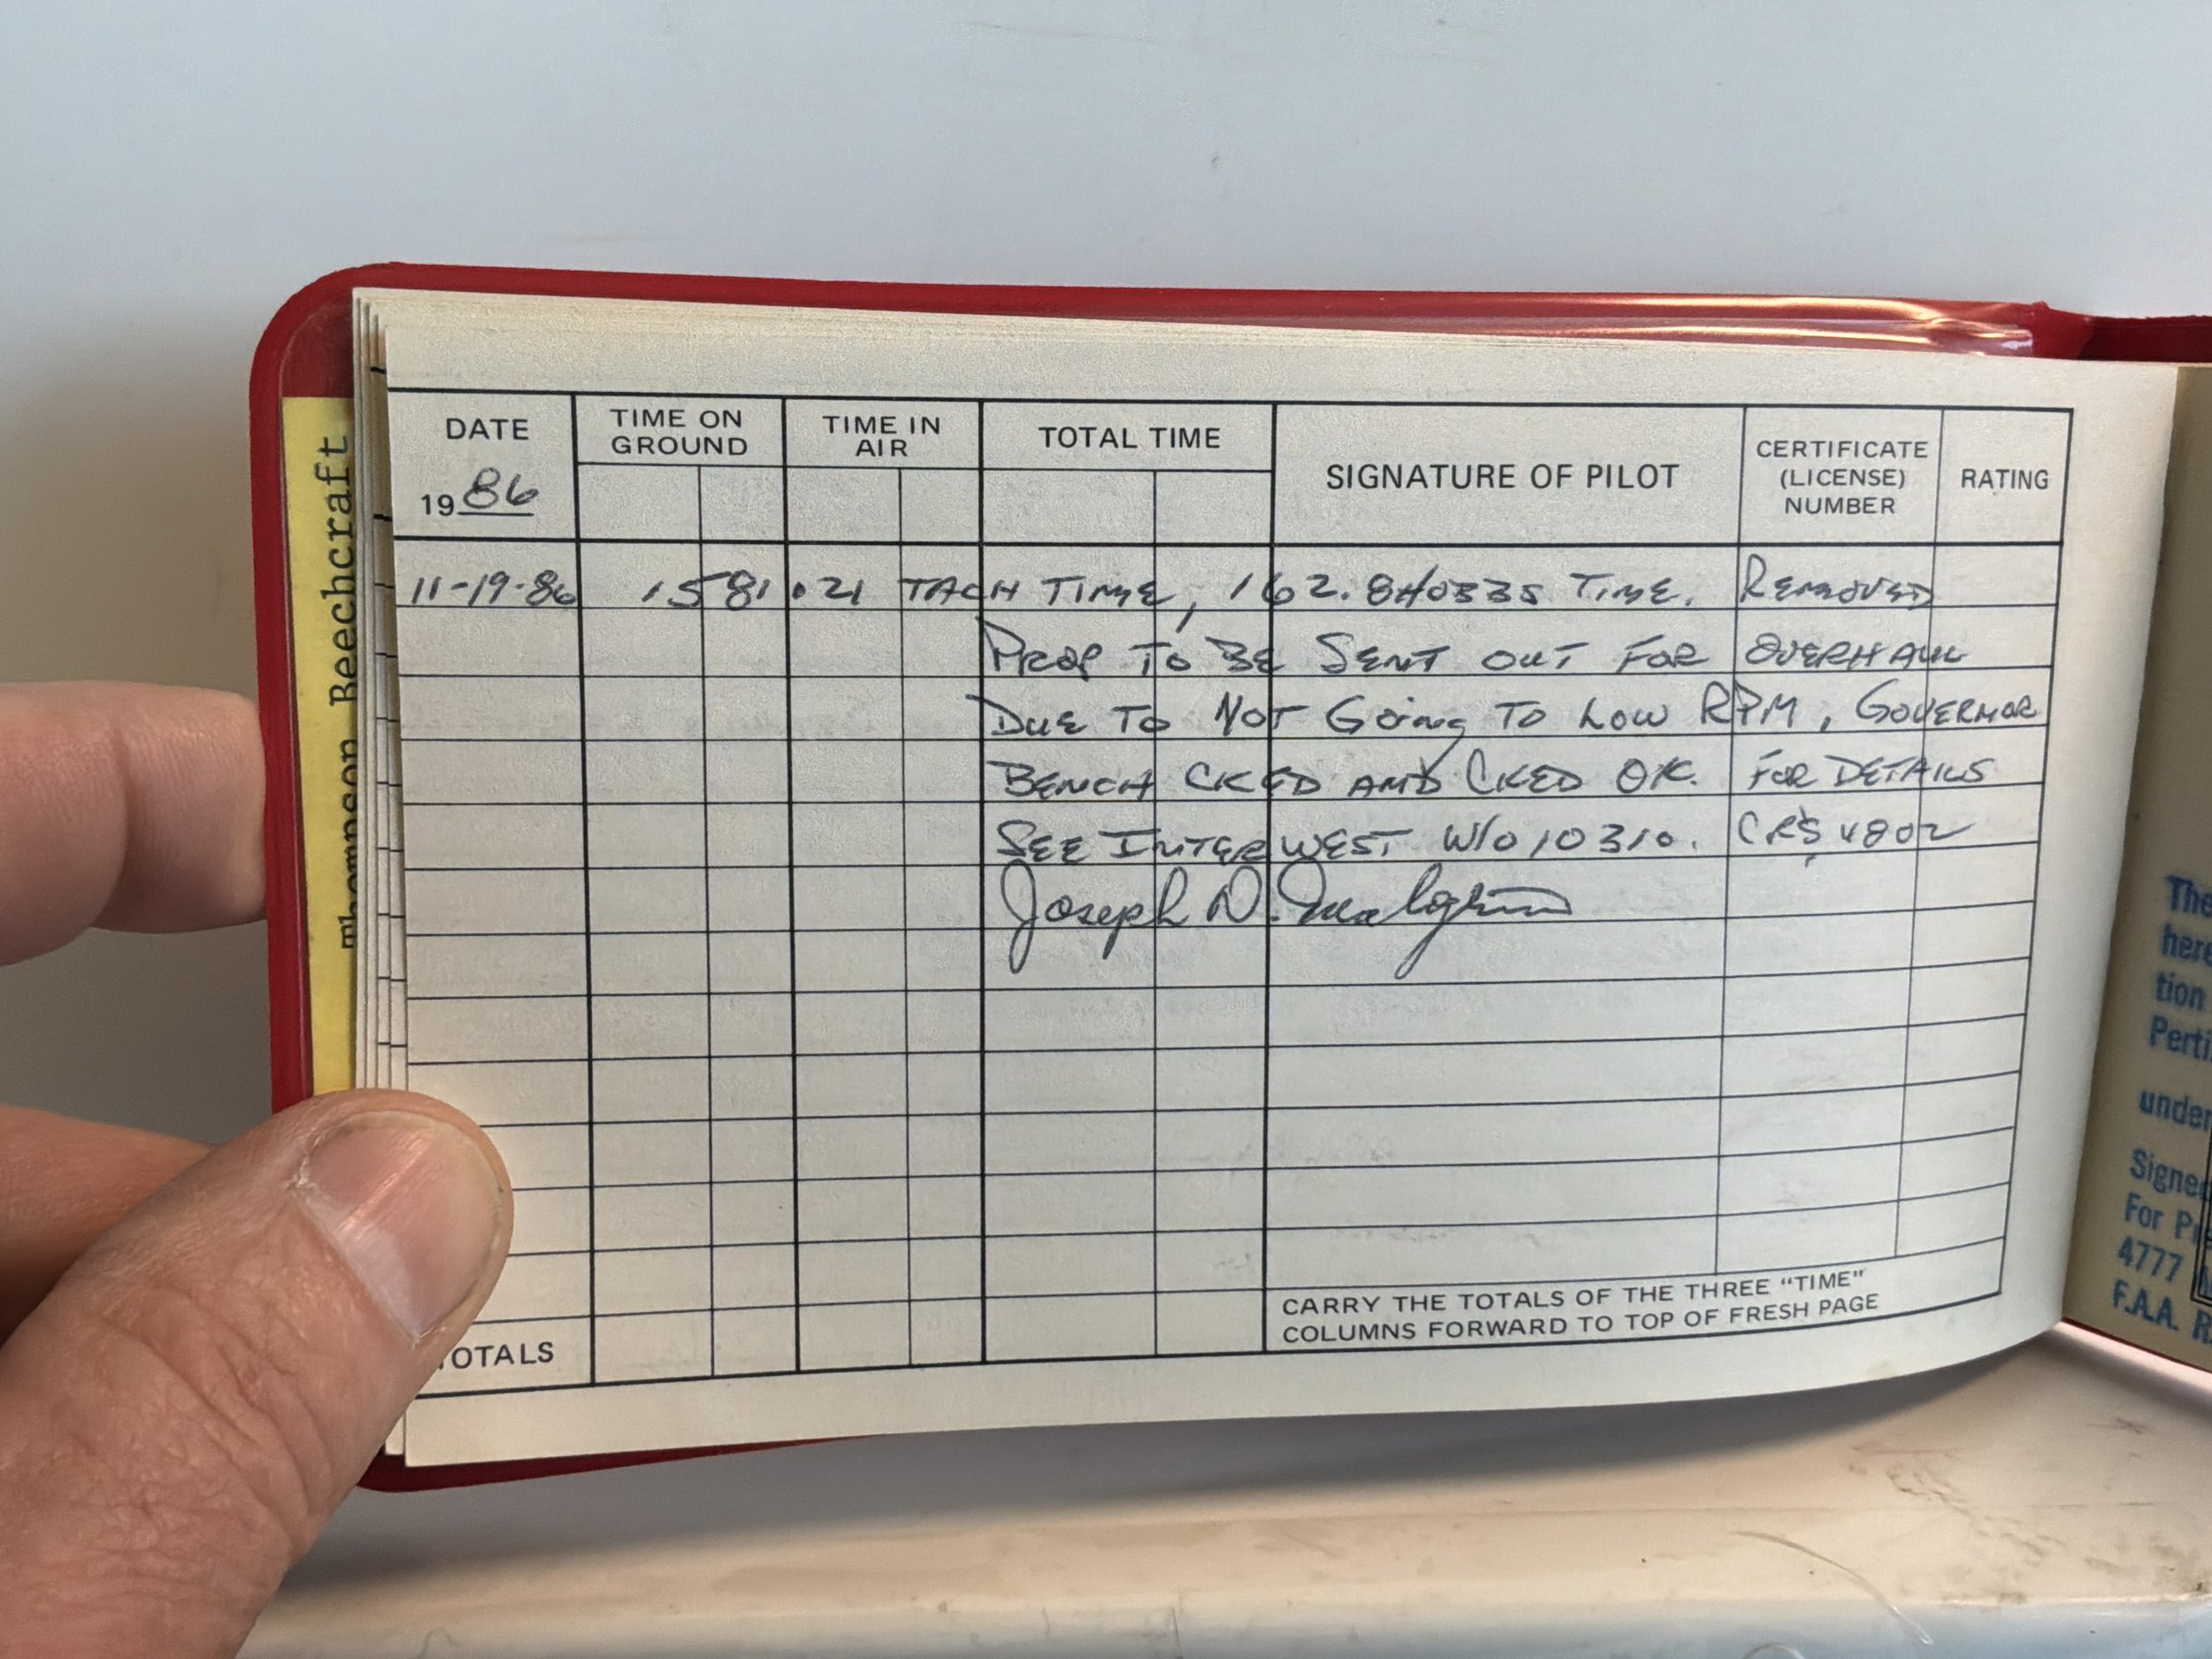 Thompson Beechcraft
DATE
19 86
TIME ON
GROUND
TIME IN
AIR
TOTAL TIME
SIGNATURE OF PILOT
CERTIFICATE
(LICENSE)
NUMBER
RATING
11-19-86 1581.21 TACH TIME, 162.8 HOBBS TIME. REMOVED
PROP TO BE SENT OUT FOR OVERHAUL
DUE TO NOT GOING TO LOW RPM, GOVERNOR
BENCH CKED AND CKED OK. FOR DETAILS
SEE INTERWEST W/O 10310. CRS 4802
Joseph D.
TOTALS
CARRY THE TOTALS OF THE THREE "TIME"
COLUMNS FORWARD TO TOP OF FRESH PAGE
The
here
tion
Perti
under
Signed
For Pr
4777
F.A.A. R